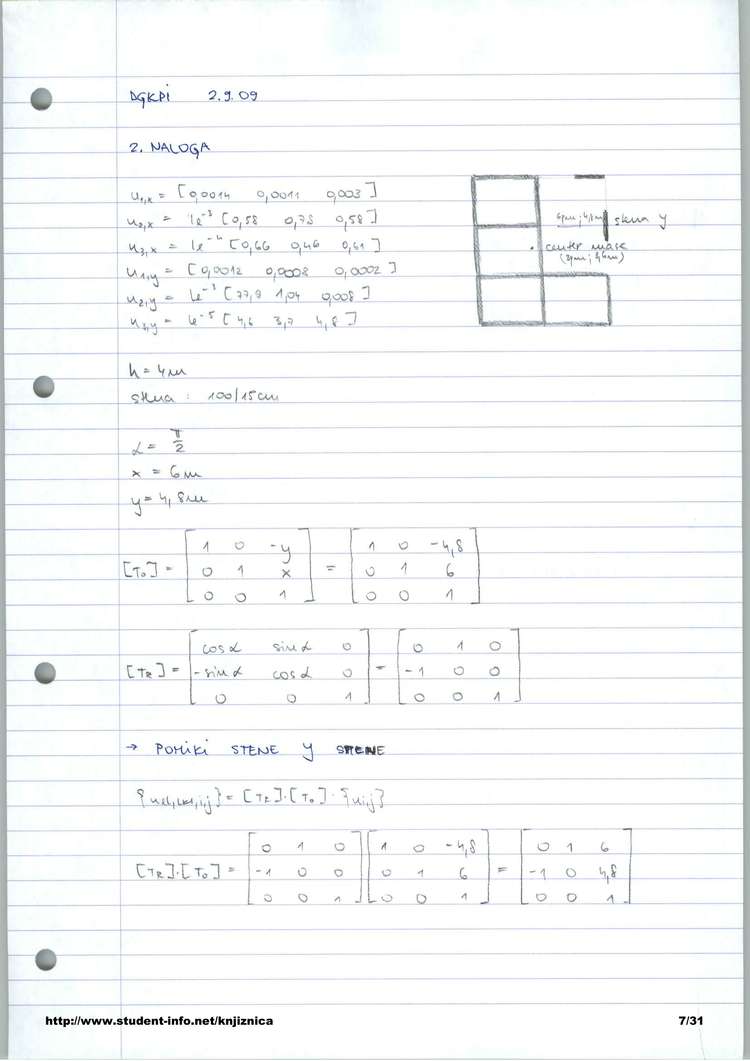 DGKPI 2.9.09
2. NALOGA
u₁,ₓ = [0,0014 0,0011 0,003]
u₂,ₓ = 1e⁻³ [0,58 0,73 0,58]
u₃,ₓ = 1e⁻⁴ [0,66 0,46 0,61]
u₁,y = [0,0012 0,0008 0,0002]
u₂,y = 1e⁻³ [77,9 1,04 0,008]
u₃,y = 1e⁻⁵ [4,6 3,7 4,8]
stena y
center mase
h = 4m
stena : 100/15cm
α = π/2
x = 6m
y = 4,8m
[T₀] = [1 0 -y = [1 0 -4,8
0 1 x 0 1 6
0 0 1] 0 0 1]
[TR] = [cosα sinα 0 = [0 1 0
-sinα cosα 0 -1 0 0
0 0 1] 0 0 1]
→ POMIKI STENE y STENE
} = [TR]·[T₀]·{ui,j}
[TR]·[T₀] = [0 1 0 [1 0 -4,8 = [0 1 6
-1 0 0 0 1 6 -1 0 4,8
0 0 1] 0 0 1] 0 0 1]
http://www.student-info.net/knjiznica 7/31